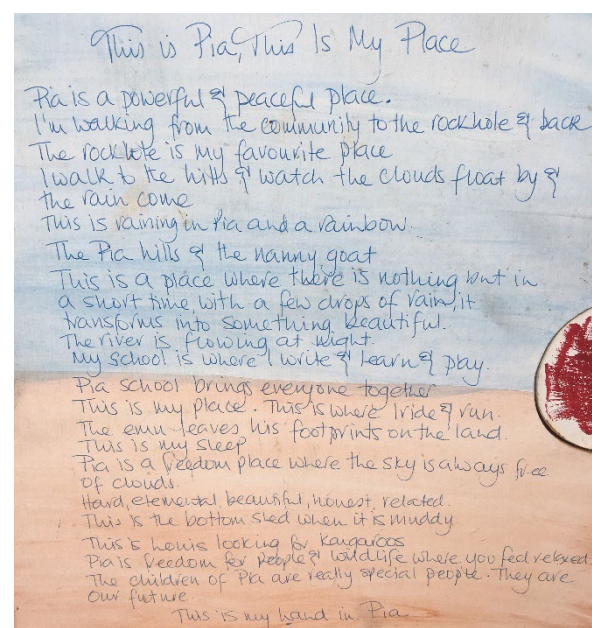 This is Pia, This Is My Place
Pia is a powerful & peaceful place.
I'm walking from the community to the rockhole & back
The rockhole is my favourite place
I walk to the hills & watch the clouds float by &
the rain come
This is raining in Pia and a rainbow.
The Pia hills & the nanny goat
This is a place where there is nothing but in
a short time, with a few drops of rain, it
transforms into something beautiful.
The river is flowing at night.
My school is where I write & learn & play.
Pia school brings everyone together
This is my place. This is where I ride & run.
The emu leaves his footprints on the land.
This is my sleep
Pia is a freedom place where the sky is always free
of clouds.
Hard, elemental, beautiful, honest, related.
This is the bottom shed when it is muddy
This is looking for kangaroos
Pia is freedom for people & wildlife where you feel relaxed.
The children of Pia are really special people. They are
our future.
This is my hand in Pia